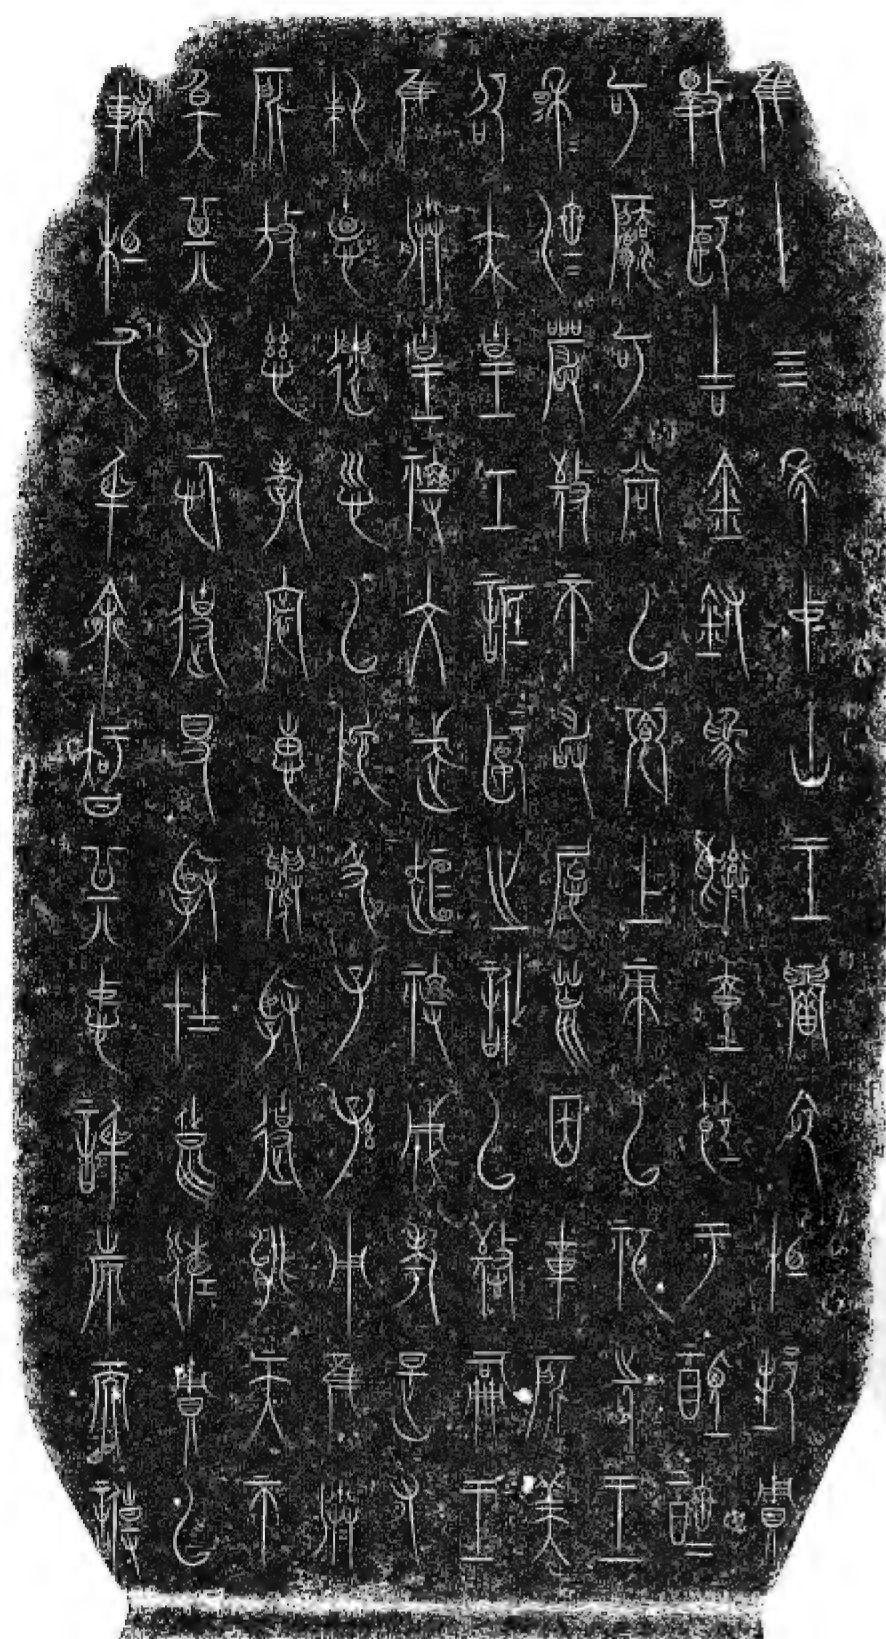 隹十四年中山王厝命相邦賙
斁郾吉金鑄爲彝壺節于禋醻
可法可尚以饗上帝以祀先王
穆=濟=嚴敬不敢怠荒因載所美
卲大皇工詆郾之訛以憼嗣王
隹朕皇祖文武桓祖成考是又
純悳遺訓以陁及子孫用隹朕
所放慈孝寰惠舉賢使能天不
斁其又忨使得賢在良佐賙以
輔相氒身余智其忠信也而專